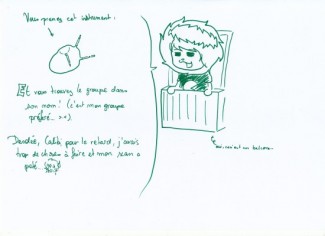 Vous prenez cet instrument :
Et vous trouvez le groupe dans
son nom ! (c'est mon groupe
préféré... >.<).
Désolée, pour le retard, j'avais
trop de choses à faire et mon scan a
oui, ceci est un balcon.